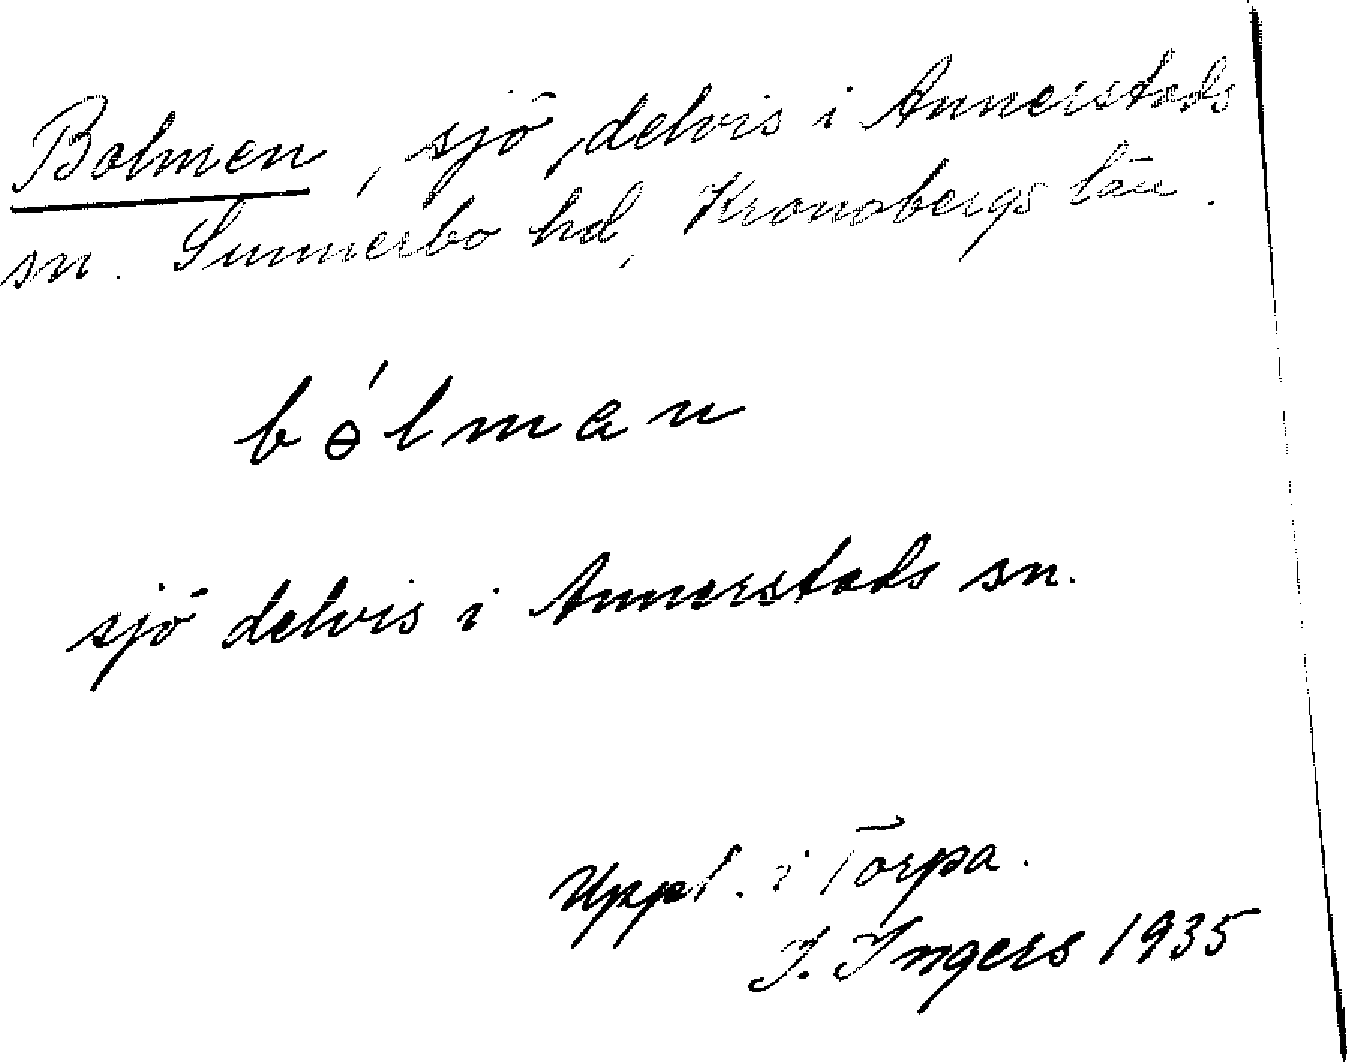 Bolmen, sjö, delvis i Annerstads
sn. Sunnerbo hd, Kronobergs län.
bɵ́lman
sjö delvis i Annerstads sn.
Uppt. i Torpa.
I. Ingers 1935